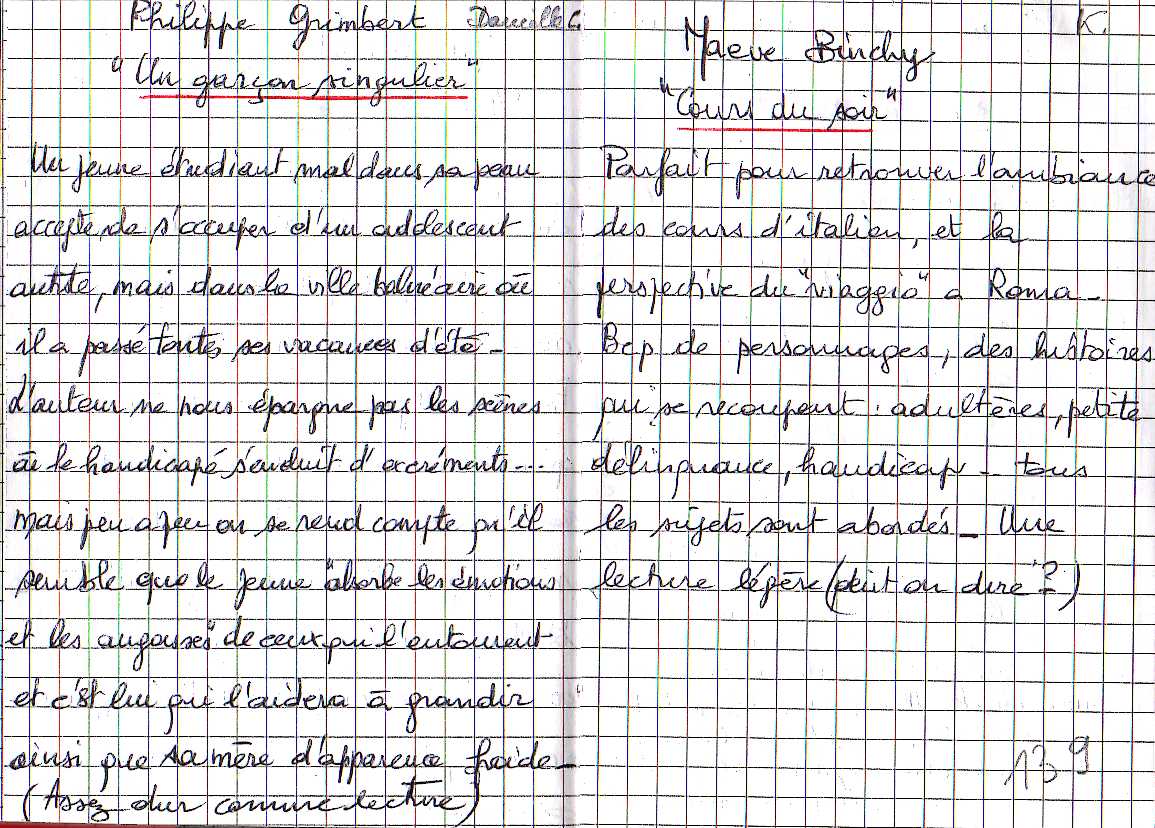 Philippe Grimbert Danielle C.
"Un garçon singulier"
Un jeune étudiant mal dans sa peau
accepte de s'occuper d'un adolescent
autiste, mais dans la ville balnéaire où
il a passé toutes ses vacances d'été -
L'auteur ne nous épargne pas les scènes
où le handicapé s'enduit d'excréments...
mais peu a peu on se rend compte qu'il
semble que le jeune "absorbe les émotions
et les angoisses" de ceux qui l'entourent
et c'est lui qui l'aidera à grandir
ainsi que sa mère d'apparence froide -
(Assez dur comme lecture)
K.
Maeve Binchy
"Cours du soir"
Parfait pour retrouver l'ambiance
des cours d'italien, et la
perspective du "viaggio" a Roma -
Bcp de personnages, des histoires
qui se recoupent : adultères, petite
délinquance, handicap - tous
les sujets sont abordés - Une
lecture légère (peut on dire ?)
139